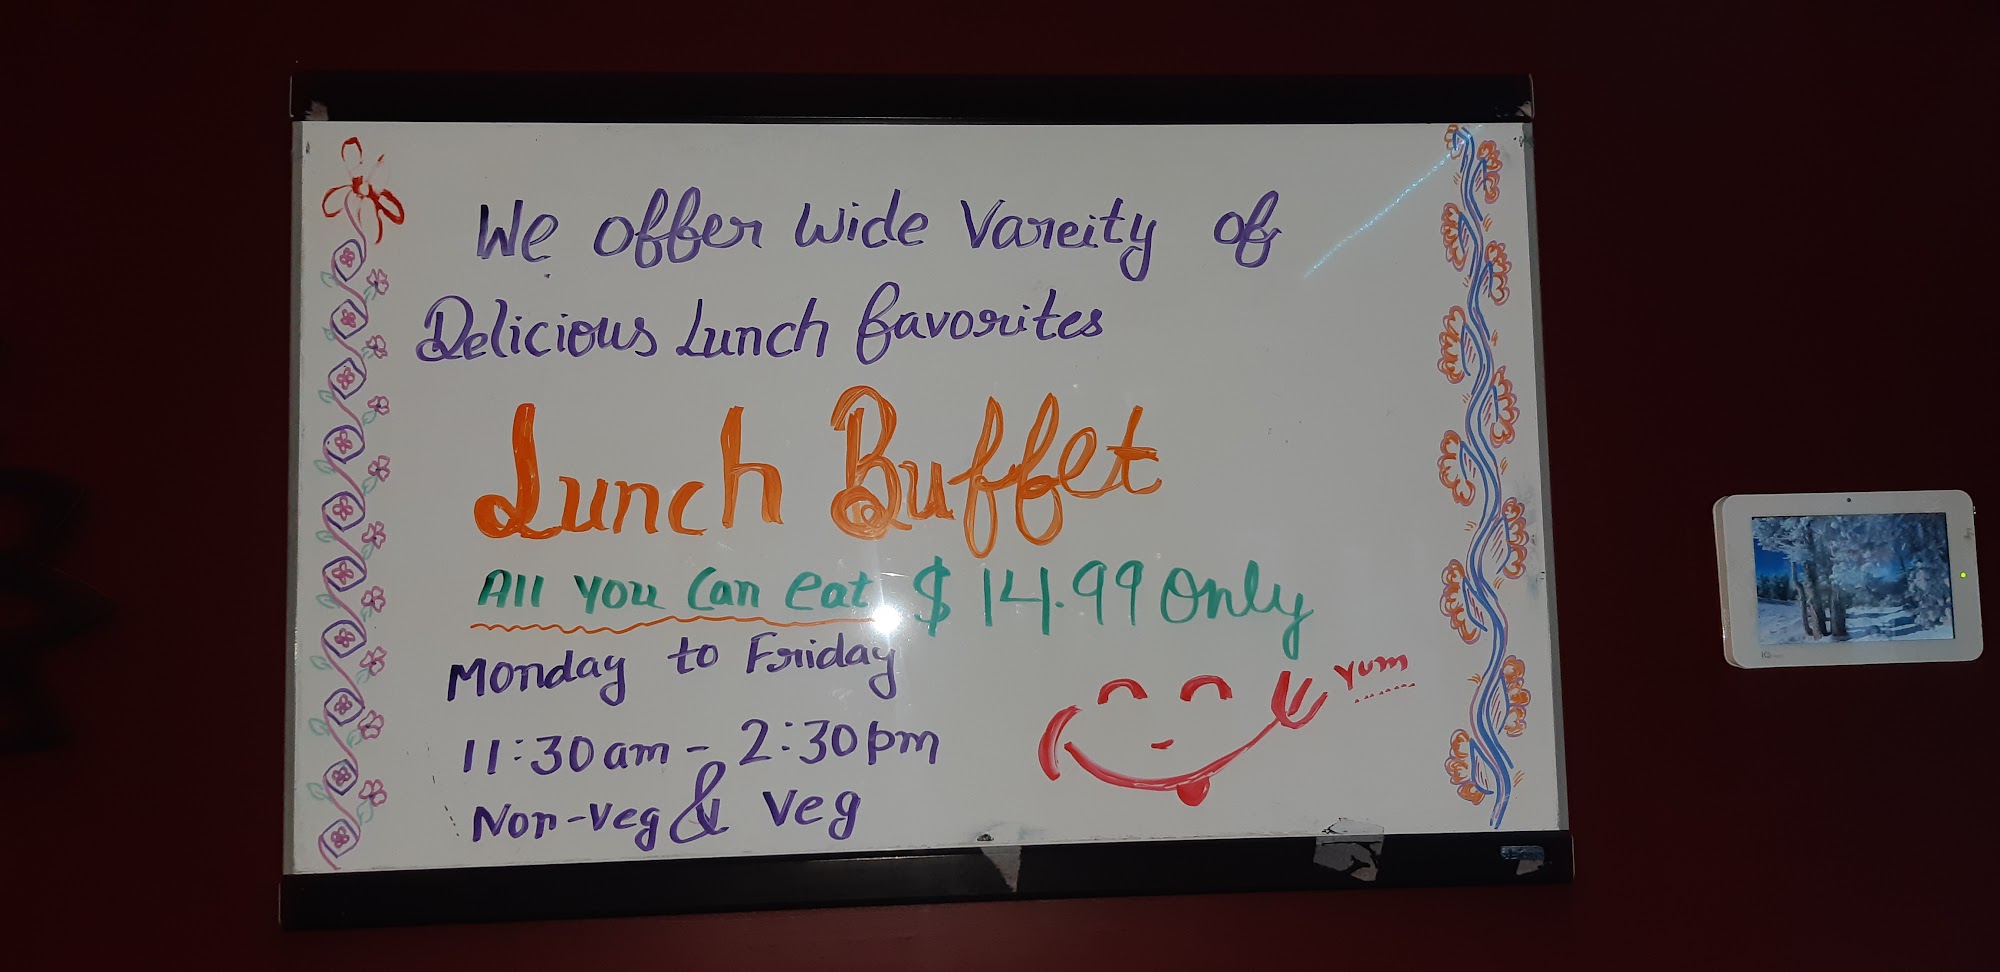 We offer Wide Vareity of
Delicious Lunch favorites
Lunch Buffet
All you Can eat $14.99 Only
Monday to Friday
11:30am - 2:30pm
Non-Veg & Veg
Yum
IQ